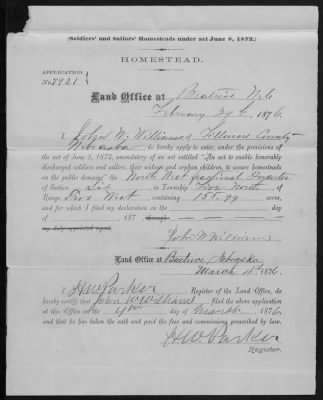 (Soldiers' and Sailors' Homesteads under act June 8, 1872.)
HOMESTEAD.
APPLICATION
No. 7921
Land Office at Beatrice Neb
February 29th, 1876.
I, John W. Williams of Fillmore County
Nebraska, do hereby apply to enter, under the provisions
of the act of June 8, 1872, amendatory of an act entitled "An act to enable honorably
discharged soldiers and sailors, their widows and orphan children, to secure homesteads
on the public domain," the North West fractional Quarter
of Section Six, in Township Five North, of
Range Two West, containing 155.99 acres,
and for which I filed my declaration on the day
of , 187 through
my duly appointed agent.
John W Williams
Land Office at Beatrice, Nebraska
March 4th 1876.
I, H W Parker, Register of the Land Office, do
hereby certify that John W Williams filed the above application
at this Office on the 4th day of March 1876,
and that he has taken the oath and paid the fees and commissions prescribed by law.
H W Parker
Register.